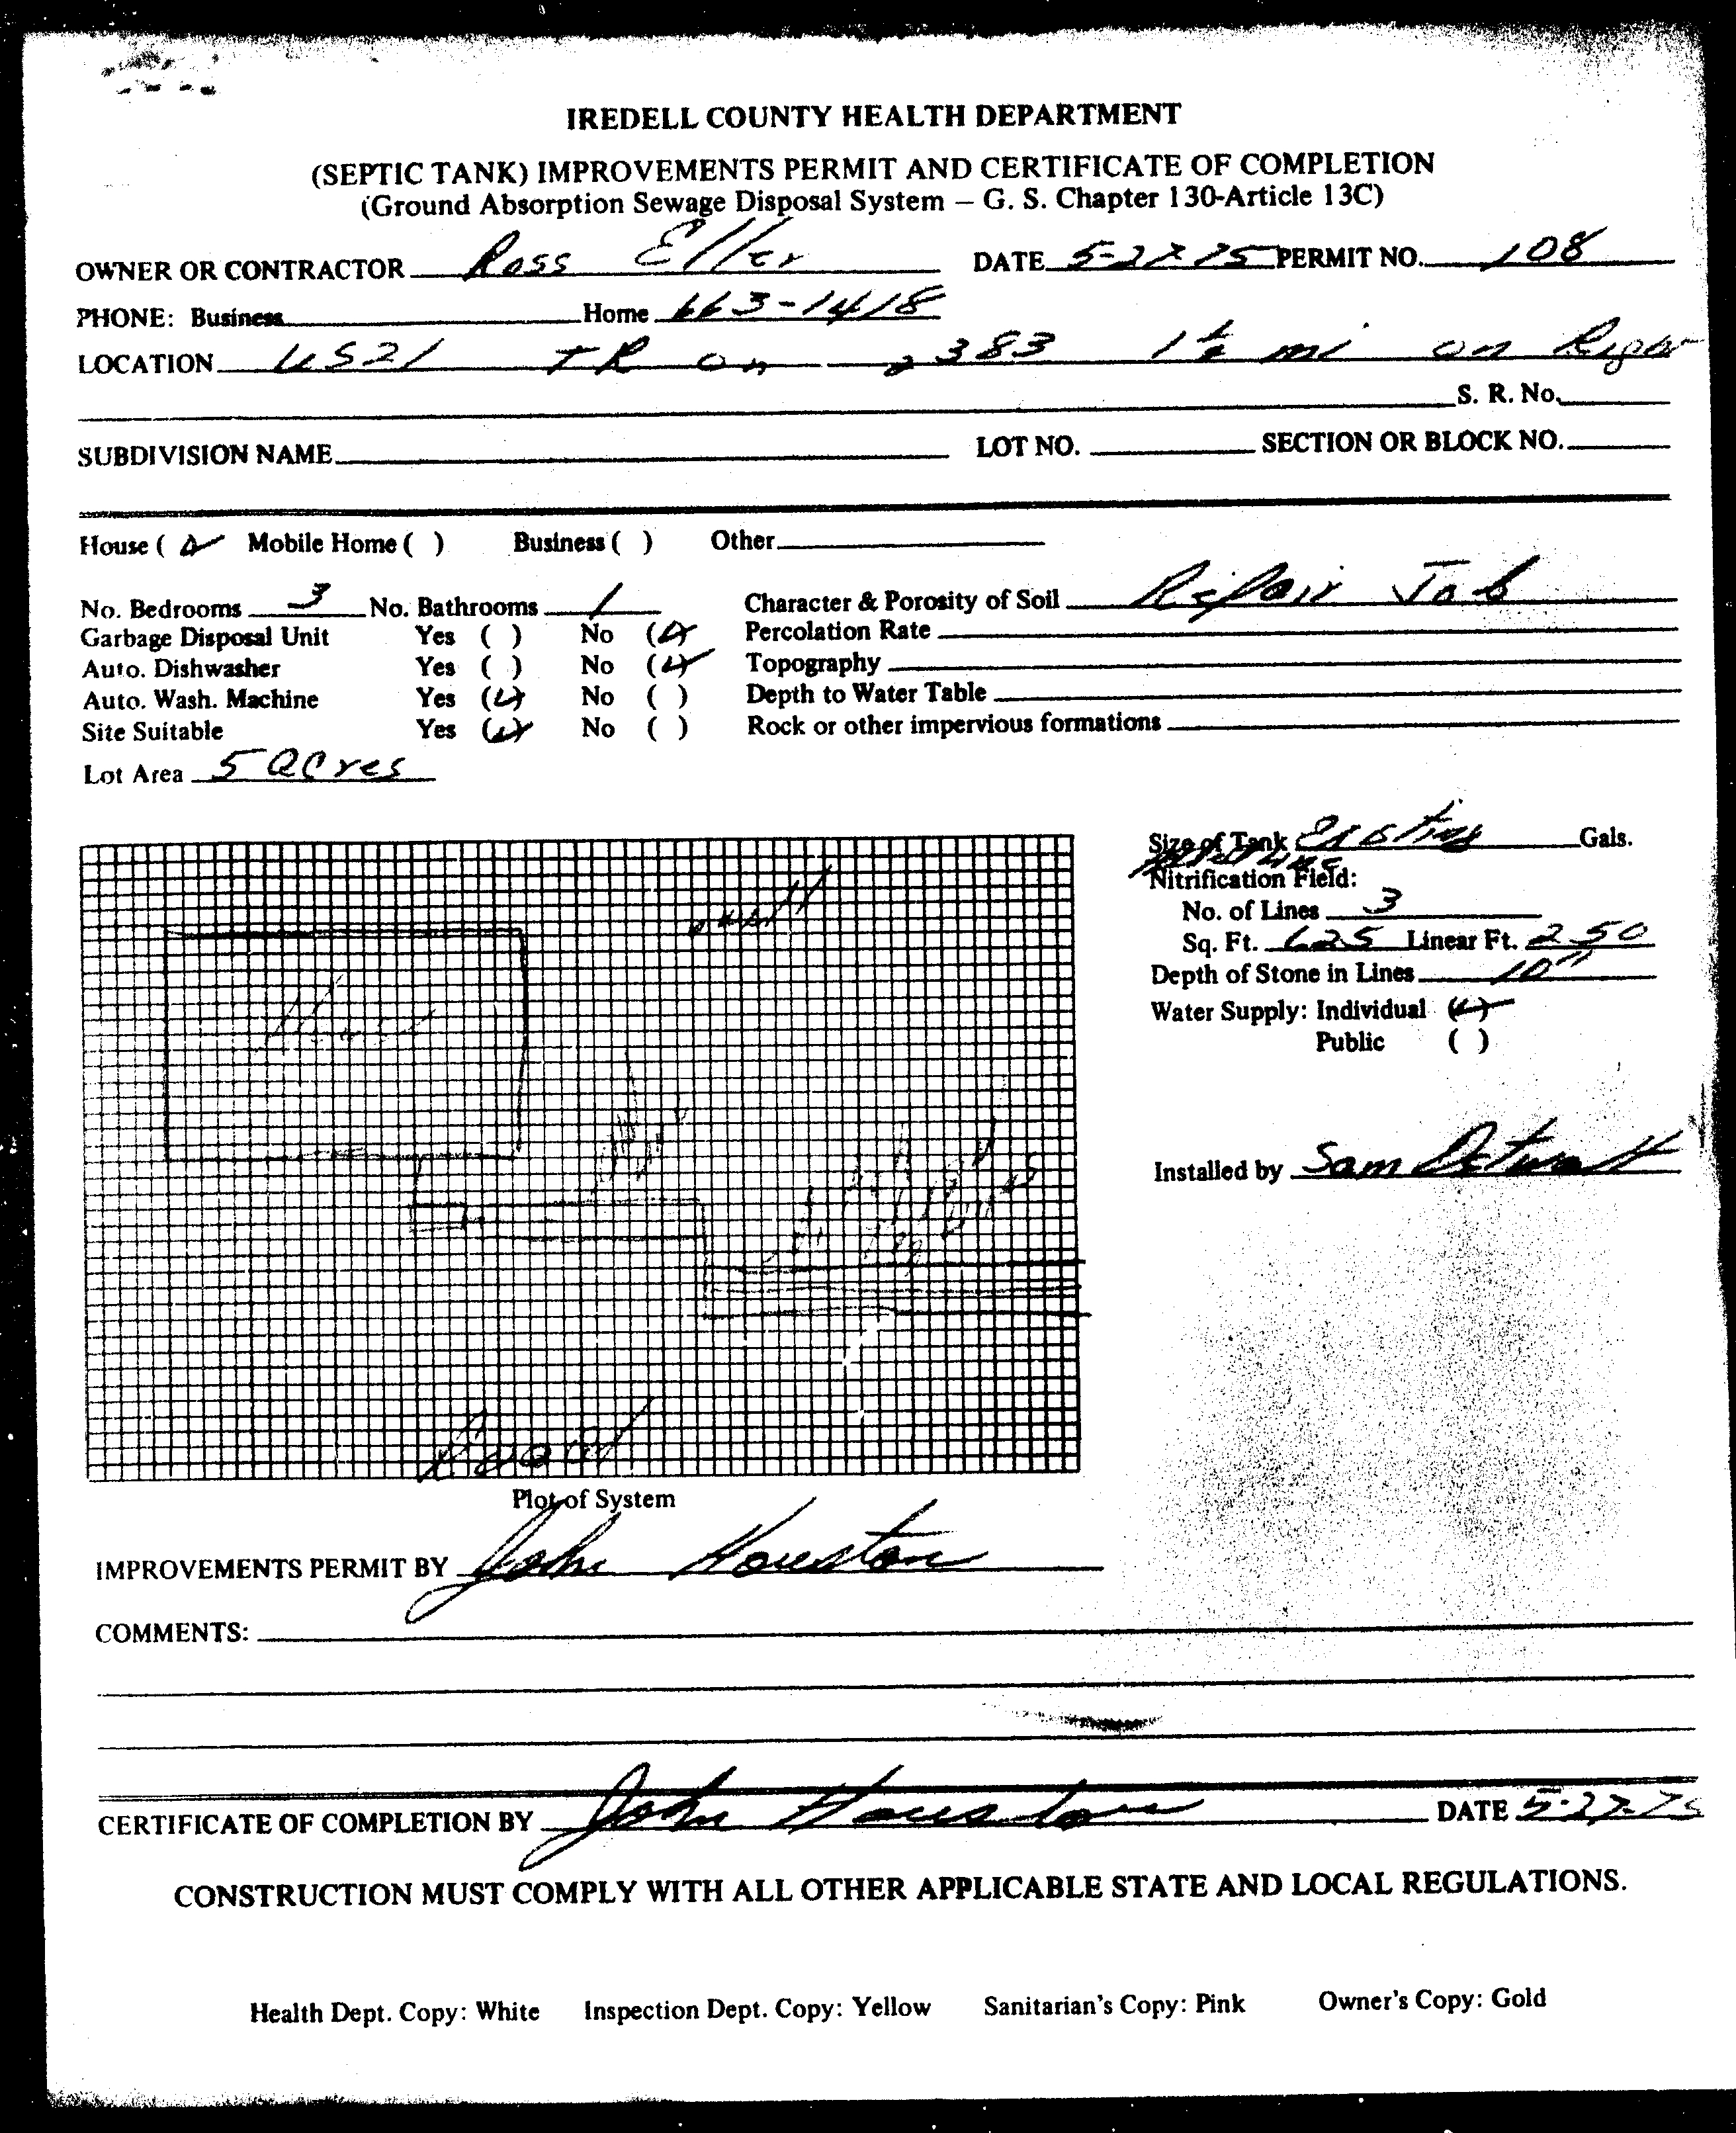 IREDELL COUNTY HEALTH DEPARTMENT
(SEPTIC TANK) IMPROVEMENTS PERMIT AND CERTIFICATE OF COMPLETION
(Ground Absorption Sewage Disposal System – G. S. Chapter 130-Article 13C)
OWNER OR CONTRACTOR Ross Eller DATE 5-27-75 PERMIT NO. 108
PHONE: Business Home 663-1418
LOCATION US21 TR on 2383 1½ mi on Right
S. R. No.
SUBDIVISION NAME LOT NO. SECTION OR BLOCK NO.
House (✓) Mobile Home ( ) Business ( ) Other
No. Bedrooms 3 No. Bathrooms 1 Character & Porosity of Soil Repair Job
Garbage Disposal Unit Yes ( ) No (✓) Percolation Rate
Auto. Dishwasher Yes ( ) No (✓) Topography
Auto. Wash. Machine Yes (✓) No ( ) Depth to Water Table
Site Suitable Yes (✓) No ( ) Rock or other impervious formations
Lot Area 5 acres
Size of Tank Existing Gals.
Nitrification Field:
No. of Lines 3
Sq. Ft. 625 Linear Ft. 250
Depth of Stone in Lines 10"
Water Supply: Individual (✓)
Public ( )
Installed by Sam
House
Road
Plot of System
IMPROVEMENTS PERMIT BY John Houston
COMMENTS:
CERTIFICATE OF COMPLETION BY John Houston DATE 5-27-75
CONSTRUCTION MUST COMPLY WITH ALL OTHER APPLICABLE STATE AND LOCAL REGULATIONS.
Health Dept. Copy: White Inspection Dept. Copy: Yellow Sanitarian's Copy: Pink Owner's Copy: Gold